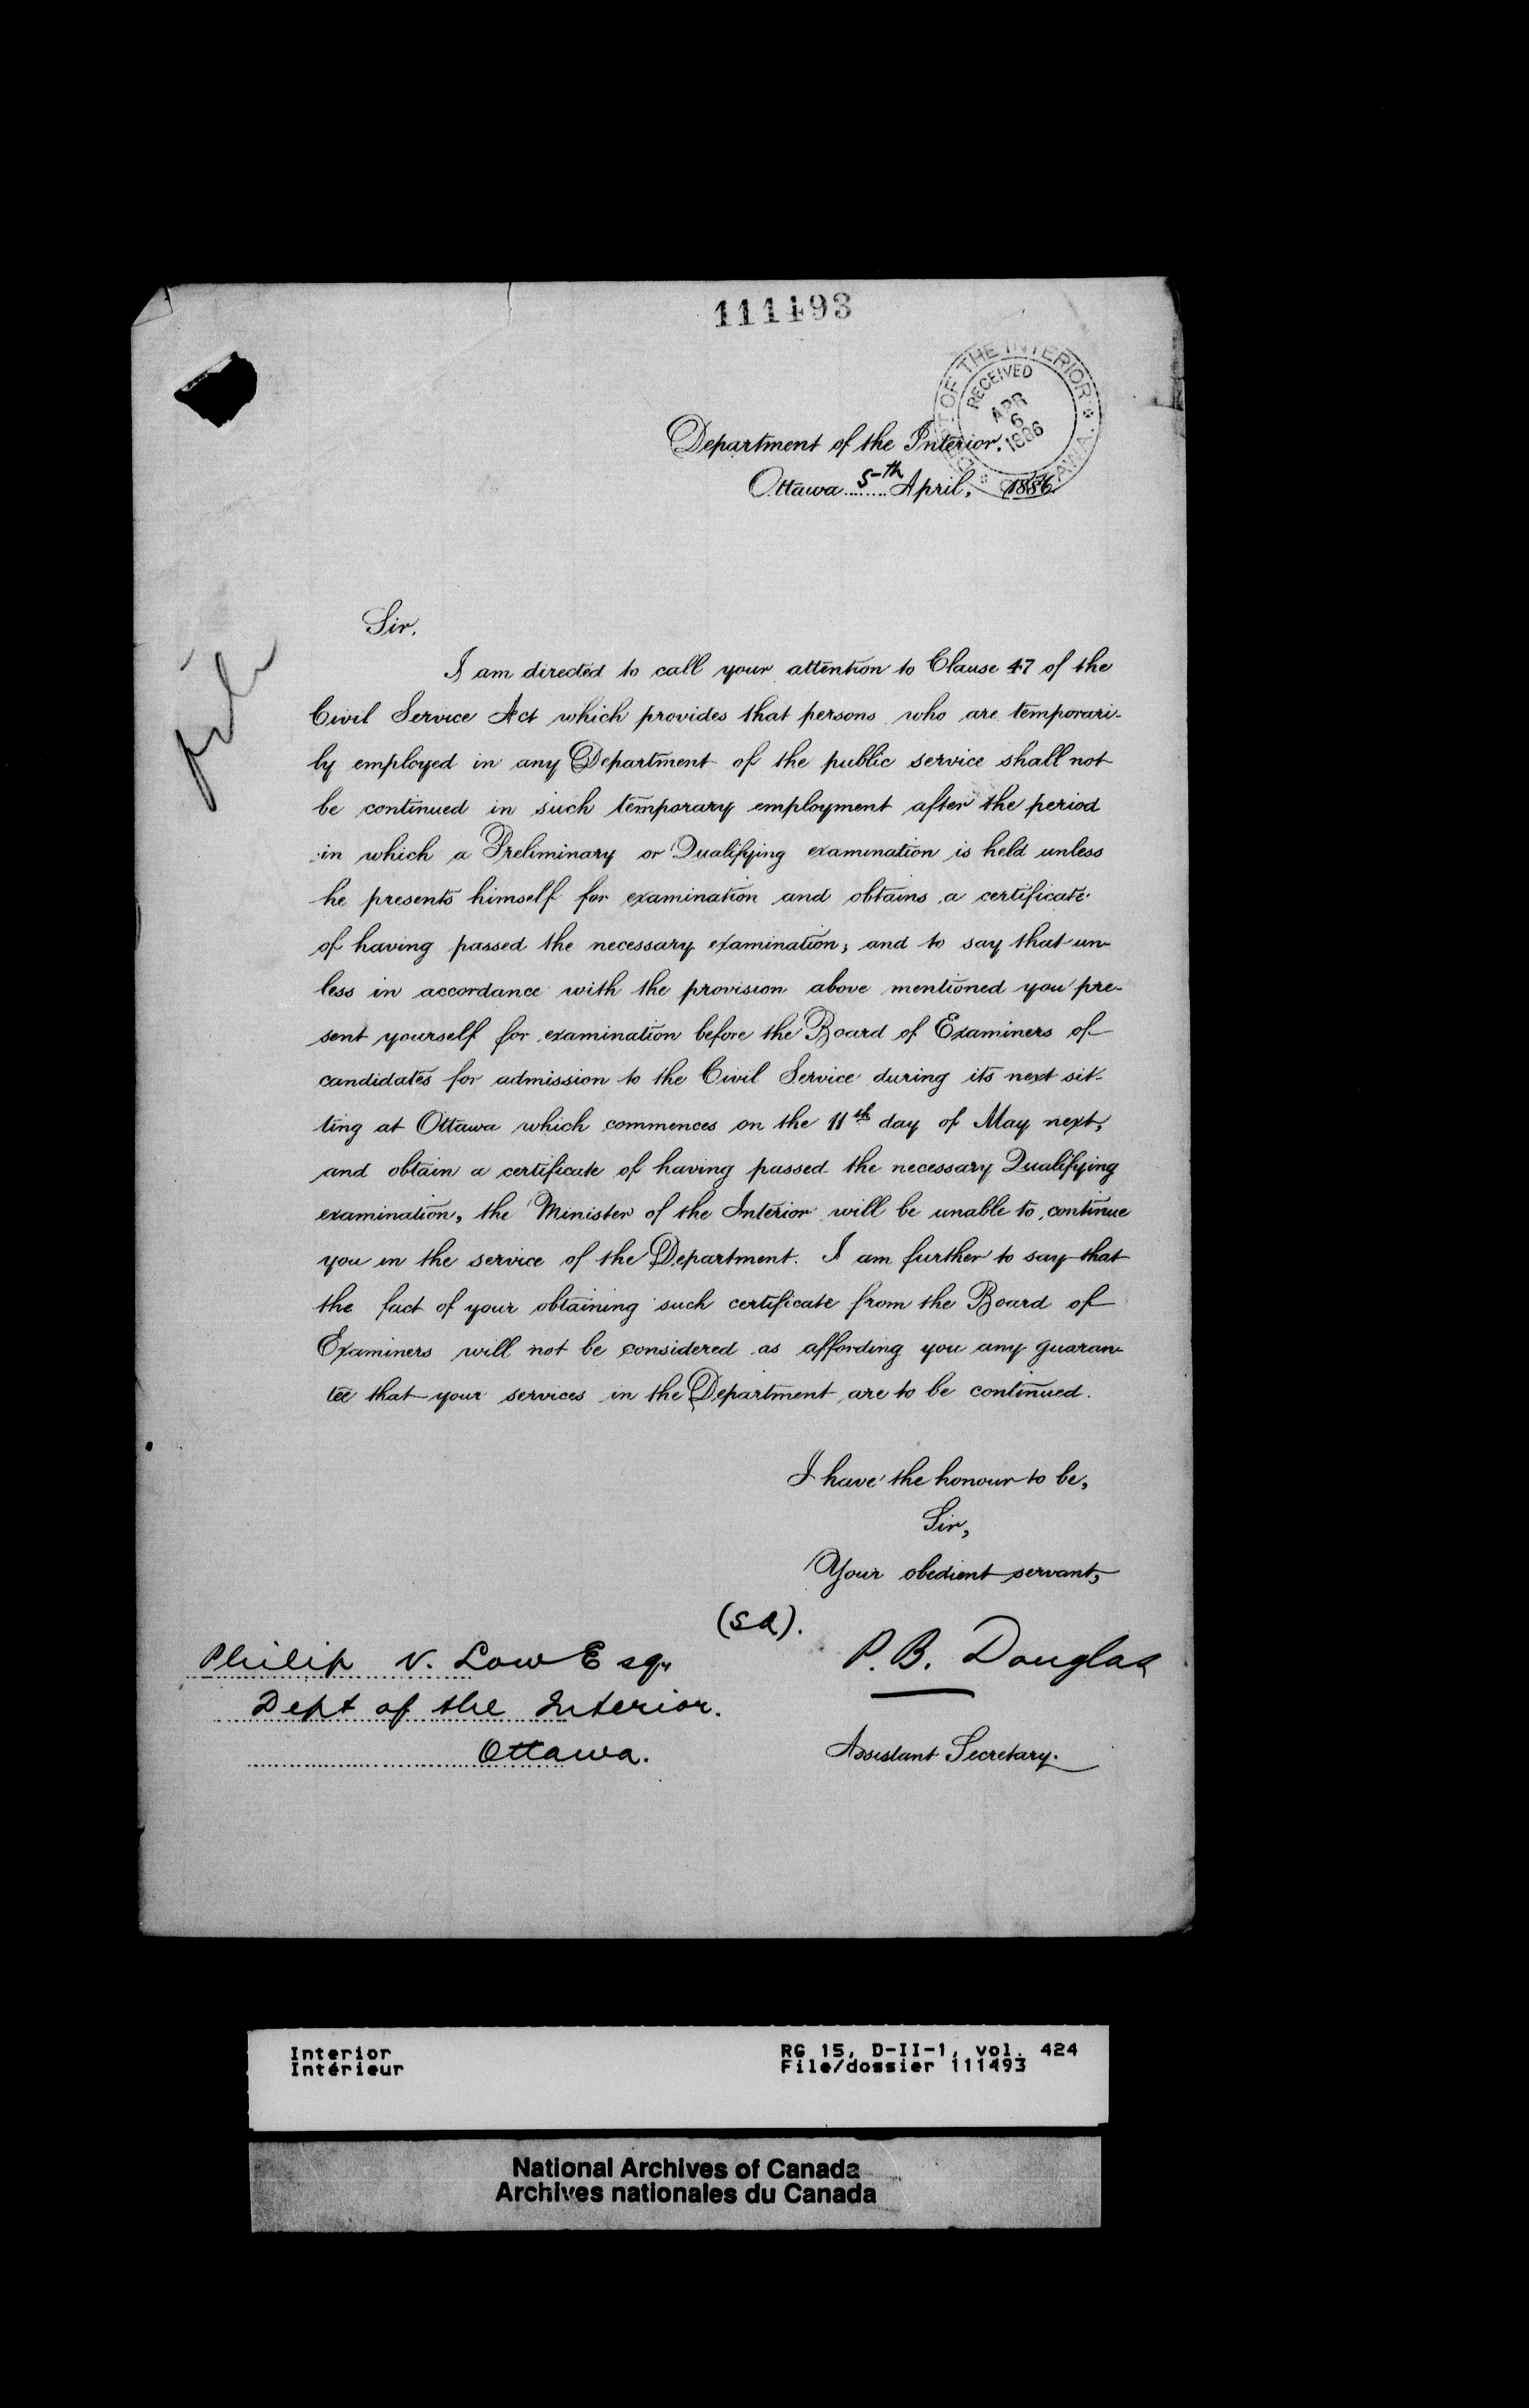 111493
DEPT OF THE INTERIOR
RECEIVED
APR
6
1886
OTTAWA
Department of the Interior.
Ottawa 5th April, 1886.
file
Sir.
I am directed to call your attention to Clause 47 of the
Civil Service Act which provides that persons who are temporari-
ly employed in any Department of the public service shall not
be continued in such temporary employment after the period
in which a Preliminary or Qualifying examination is held unless
he presents himself for examination and obtains a certificate
of having passed the necessary examination; and to say that un-
less in accordance with the provision above mentioned you pre-
sent yourself for examination before the Board of Examiners of
candidates for admission to the Civil Service during its next sit-
ting at Ottawa which commences on the 11th day of May next,
and obtain a certificate of having passed the necessary Qualifying
examination, the Minister of the Interior will be unable to continue
you in the service of the Department. I am further to say that
the fact of your obtaining such certificate from the Board of
Examiners will not be considered as affording you any guaran-
tee that your services in the Department are to be continued.
I have the honour to be,
Sir,
Your obedient servant,
(Sd).
P. B. Douglas
Philip V. Low Esqr
Dept of the Interior.
Ottawa.
Assistant Secretary.
Interior
Intérieur
RG 15, D-II-1, vol. 424
File/dossier 111493
National Archives of Canada
Archives nationales du Canada